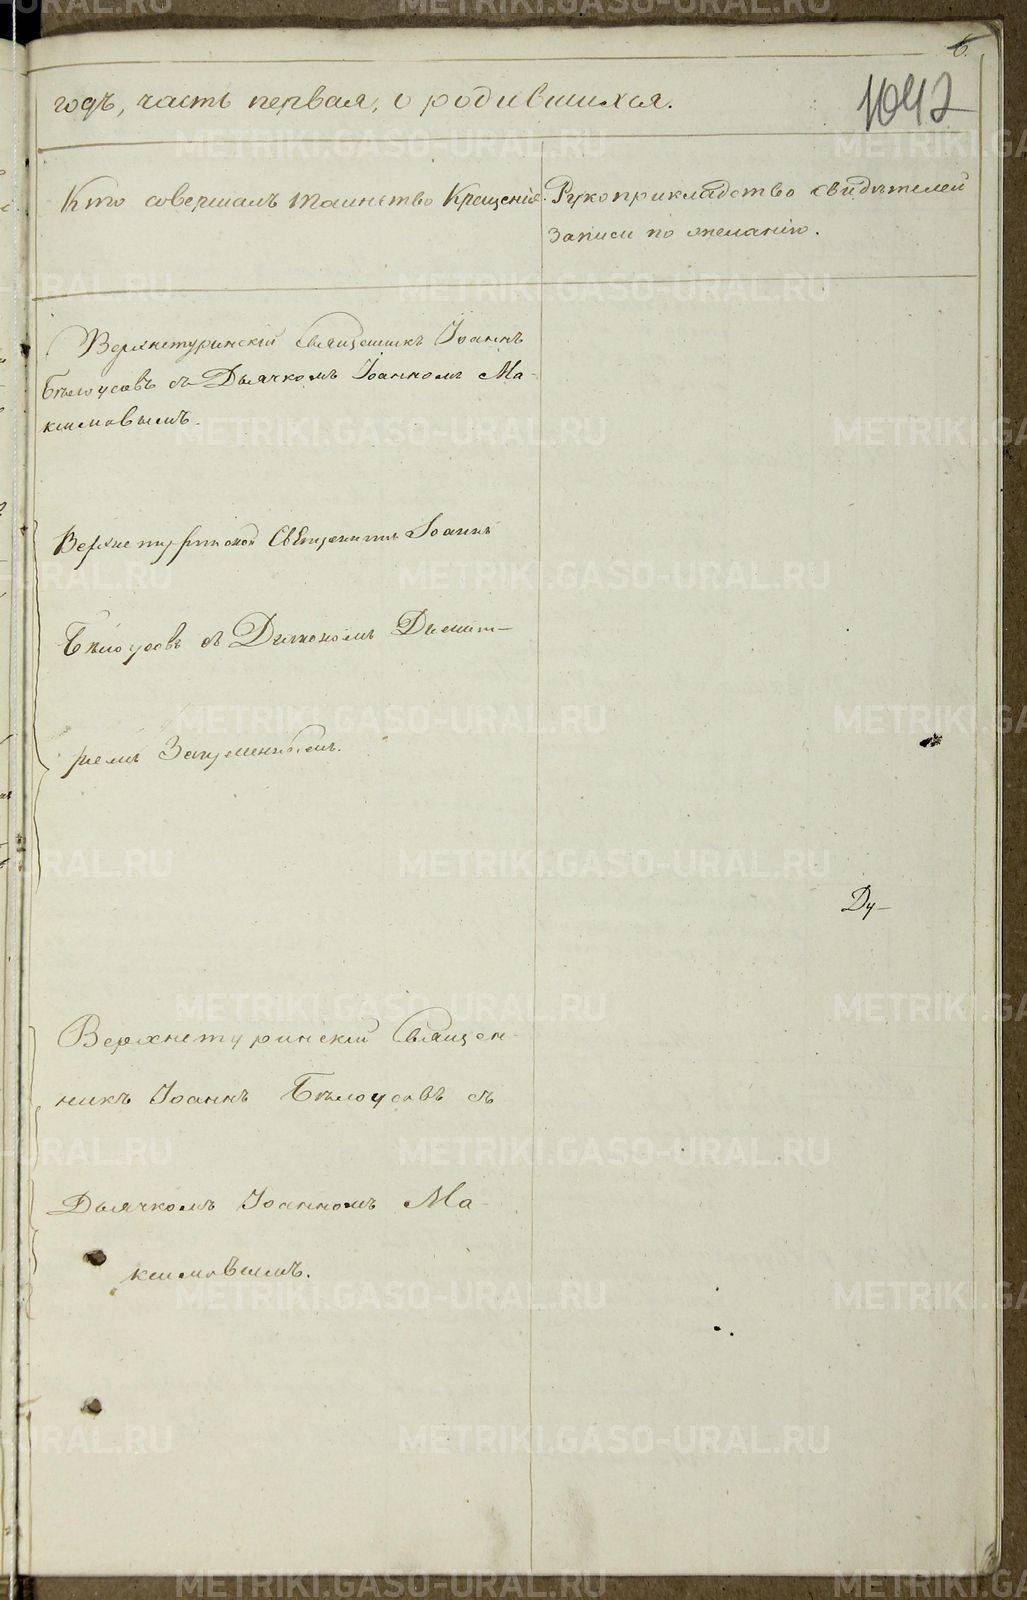 6.
1042
годъ, часть первая, о родившихся.
Кто совершалъ таинство Крещенія.
Рукоприкладство свидѣтелей
записи по желанію.
Верхнетуринскій Священникъ Іоаннъ
Бѣлоусовъ съ Дьячкомъ Іоанномъ Ма-
ксимовымъ.
Верхнетуринской Священникъ Іоаннъ
Бѣлоусовъ съ Дьякономъ Димит-
ріемъ
Ду-
Верхнетуринскій Священ-
никъ Іоаннъ Бѣлоусовъ съ
Дьячкомъ Іоанномъ Ма-
ксимовымъ.
METRIKI.GASO-URAL.RU